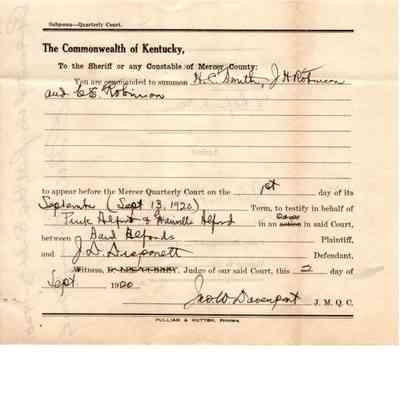 Subpoena—Quarterly Court.
The Commonwealth of Kentucky,
To the Sheriff or any Constable of Mercer County:
You are commanded to summon H. C. Smith, J H Robinson
and C E Robinson
to appear before the Mercer Quarterly Court on the 1st day of its
September (Sept 13, 1920) Term, to testify in behalf of
Alford & Alford in an action in said Court,
between Said Alfords Plaintiff,
and J. D. Defendant,
Witness, Judge of our said Court, this 2 day of
Sept 1920
Jno W Davenport J. M. Q. C.
PULLIAM & HUTTON, Printers.